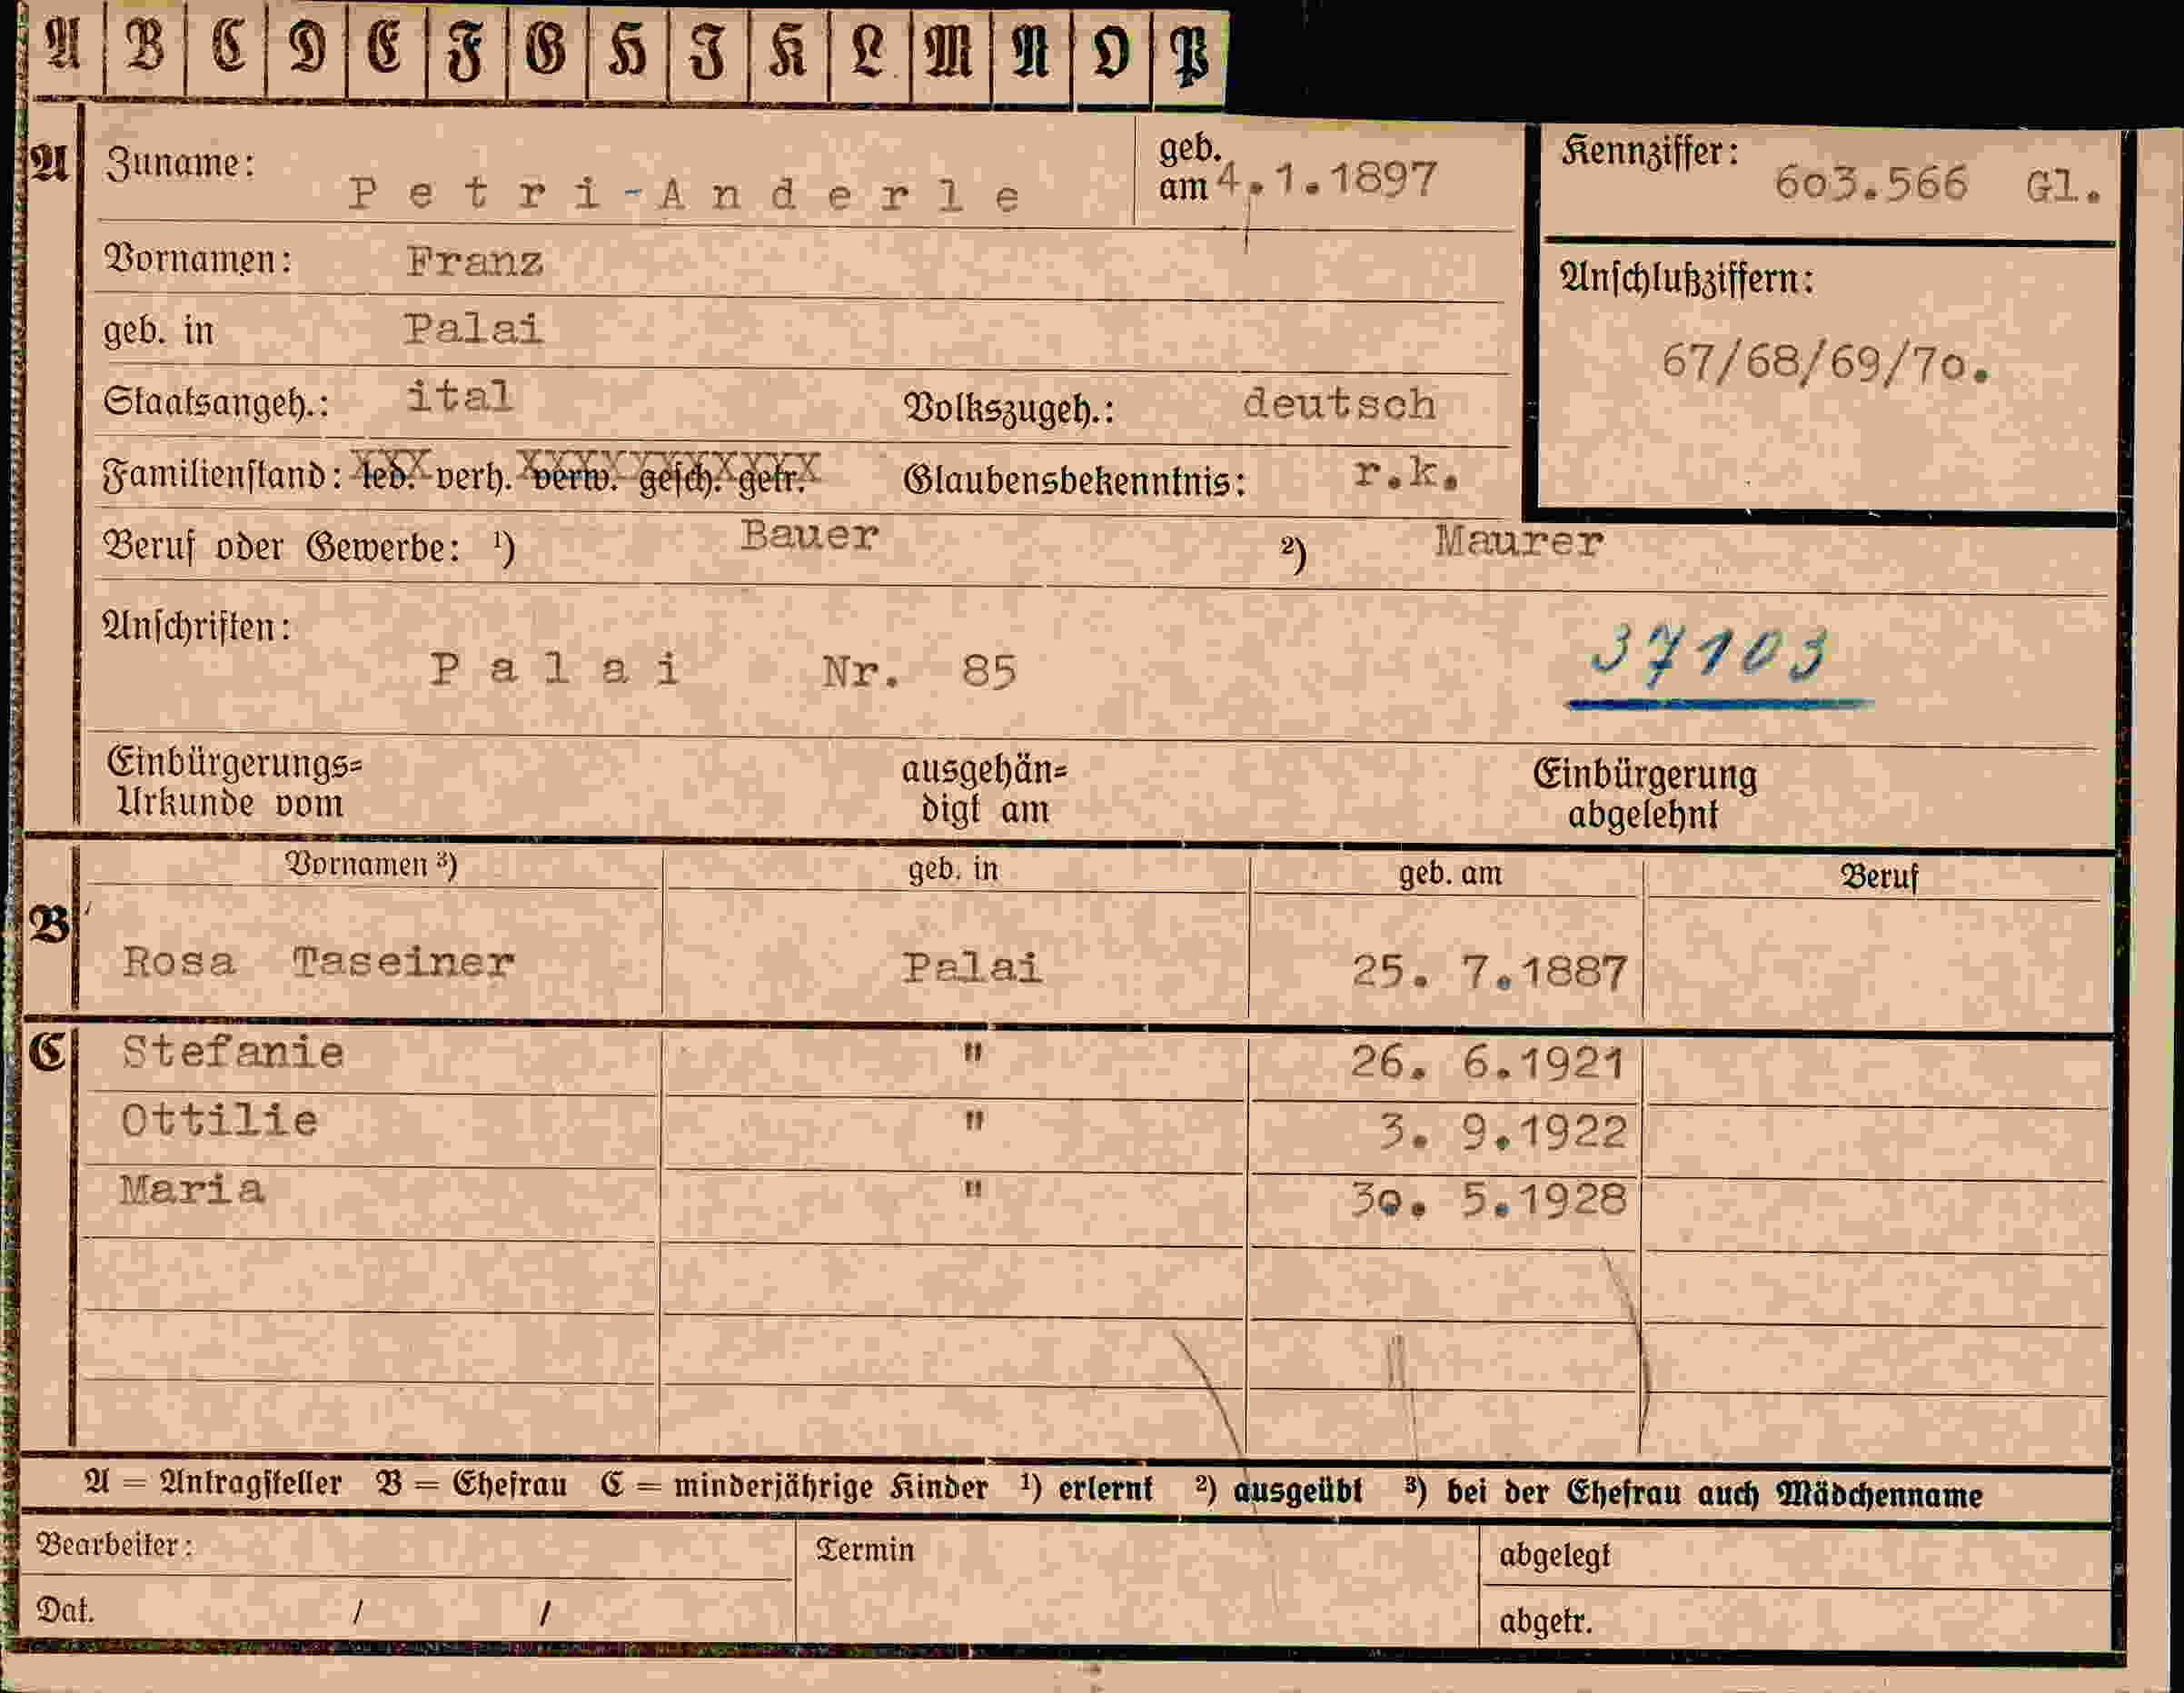 A B C D E F G H I K L M N O P
A Zuname: Petri-Anderle geb. am 4.1.1897 Kennziffer: 603.566 Gl.
Vornamen: Franz
geb. in Palai
Anschlußziffern: 67/68/69/70.
Staatsangeh.: ital Volkszugeh.: deutsch
Familienstand: led. verh. verw. gesch. getr. Glaubensbekenntnis: r.k.
Beruf oder Gewerbe: ¹) Bauer ²) Maurer
Anschriften: Palai Nr. 85 37103
Einbürgerungs= ausgehän= Einbürgerung
Urkunde vom digt am abgelehnt
Vornamen ³) geb. in geb. am Beruf
B Rosa Taseiner Palai 25. 7.1887
C Stefanie " 26. 6.1921
Ottilie " 3. 9.1922
Maria " 30. 5.1928
A = Antragsteller B = Ehefrau C = minderjährige Kinder ¹) erlernt ²) ausgeübt ³) bei der Ehefrau auch Mädchenname
Bearbeiter: Termin abgelegt
Dat. / / abgetr.